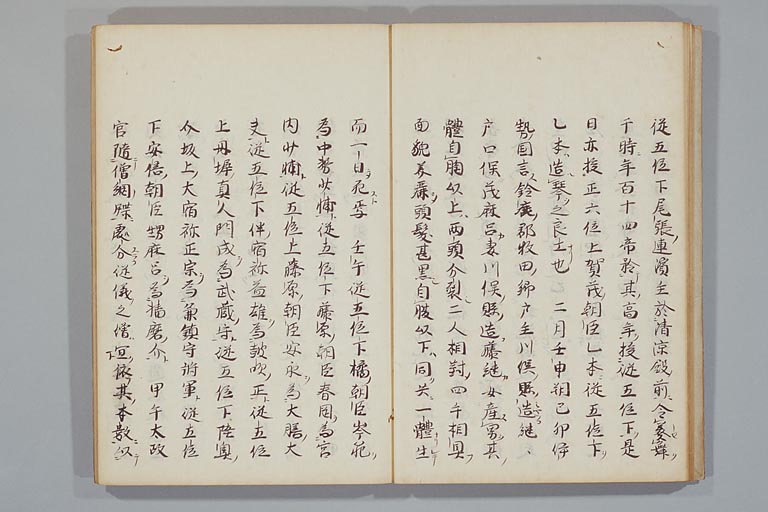 從五位下尾張連濱主於清涼殿前令奏舞
于時年百十四帝矜其高年授從五位下是
日亦授正六位上賀茂朝臣乙本從五位下
乙本造琴之良工也 二月壬申朔己卯伊
勢國言鈴鹿郡牧田鄉戶主川俣縣造繼
戶口保茂麻呂妻川俣縣造藤繼女產男其
體自胸以上兩頭分裂二人相對四手相具
面貌美麗頭髮甚黑自腹以下同共一體生
而一日死矣 壬午從五位下橘朝臣岑範
為中務少輔從五位下藤原朝臣春岡為宮
內少輔從五位上藤原朝臣安永為大膳大
夫從五位下伴宿祢益雄為鼓吹正從五位
上丹墀真人門成為武藏守從五位下陸奧
介坂上大宿祢正宗為兼鎮守將軍從五位
下安倍朝臣甥麻呂為播磨介 甲午太政
官隨僧綱牒處分從儀之僧宜依其本數以